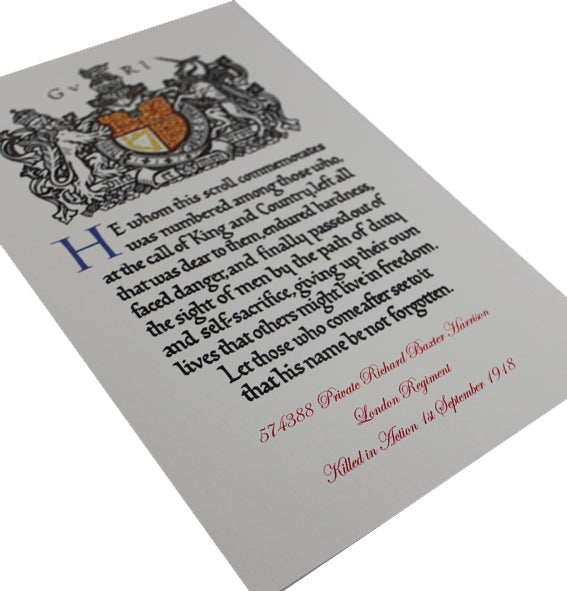 GV RI
HE whom this scroll commemorates
was numbered among those who,
at the call of King and Country, left all
that was dear to them, endured hardness,
faced danger, and finally passed out of
the sight of men by the path of duty
and self-sacrifice, giving up their own
lives that others might live in freedom.
Let those who come after see to it
that his name be not forgotten.
574388 Private Richard Baxter Harrison
London Regiment
Killed in Action 1st September 1918